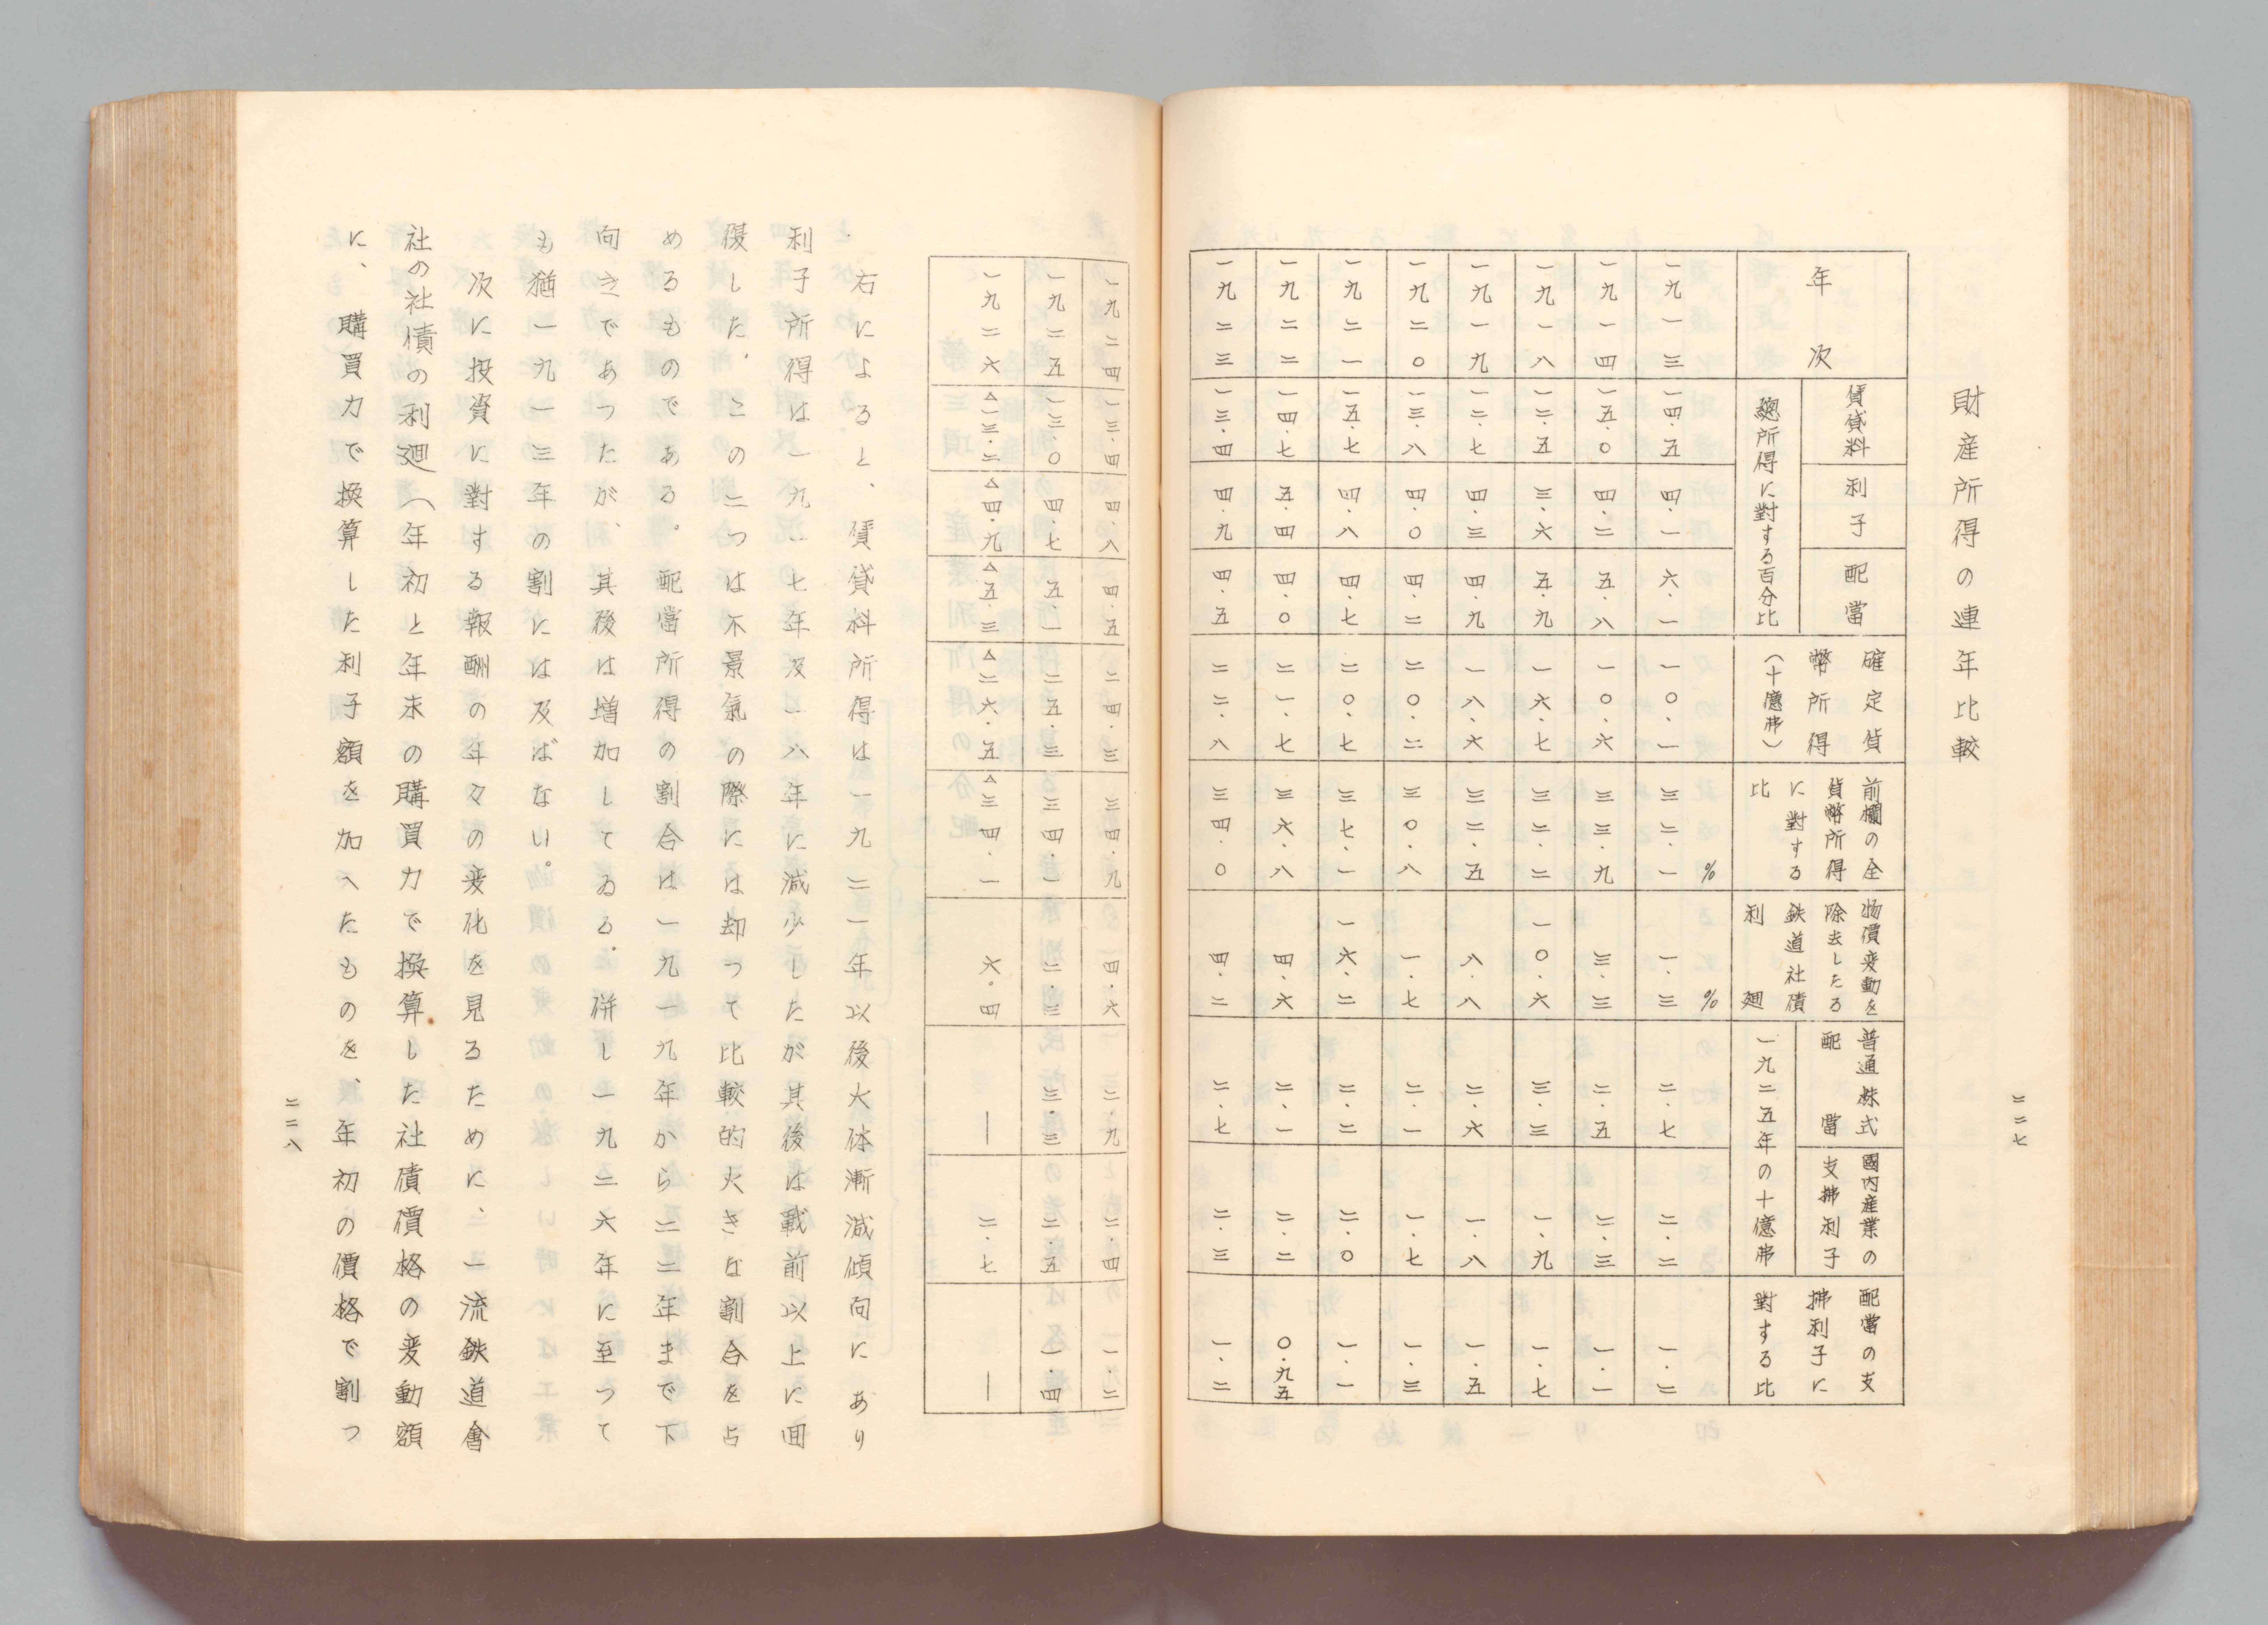 二二七
財産所得の連年比較
年次
賃貸料
利子
配當
總所得に對する百分比
確定貨
幣所得
（十億弗）
前欄の全
貨幣所得
に對する
比
物價変動を
除去したる
鉄道社債
利廻
普通株式
配當
國内産業の
支拂利子
一九二五年の十億弗
配當の支
拂利子に
對する比
% %
一九一三 一四・五 四・一 六・一 一〇・一 三二・一 一・三 二・七 二・二 一・二
一九一四 一五・〇 四・二 五・八 一〇・六 三三・九 三・三 二・五 二・三 一・一
一九一八 一二・五 三・六 五・九 一六・七 三二・二 一〇・六 三・三 一・九 一・七
一九一九 一二・七 四・三 四・九 一八・六 三二・五 八・八 二・六 一・八 一・五
一九二〇 一三・八 四・〇 四・二 二〇・二 三〇・八 一・七 二・一 一・七 一・三
一九二一 一五・七 四・八 四・七 二〇・七 三七・一 一六・二 二・二 二・〇 一・一
一九二二 一四・七 五・四 四・〇 二一・七 三六・八 四・六 二・一 二・二 〇・九五
一九二三 一三・四 四・九 四・五 二二・八 三四・〇 四・二 二・七 二・三 一・二
一九二四 一三・四 四・八 四・五 二四・三 三四・九 四・六 二・九 二・四 一・二
一九二五 一三・〇 四・七 五・一 二五・三 三四・一 二・三 三・三 二・五 一・四
一九二六 △一三・二 △四・九 △五・三 △二六・五 △三四・一 六・四 ― 二・七 ―
右によると、賃貸料所得は一九二一年以後大体漸減傾向にあり
利子所得は一九一七年及一八年に減少したが其後は戰前以上に囬
復した。この二つは不景氣の際には却つて比較的大きな割合を占
めるものである。配當所得の割合は一九一九年から二二年まで下
向きであつたが、其後は増加してゐる。併し一九二六年に至つて
も猶一九一三年の割には及ばない。
次に投資に對する報酬の年々の変化を見るために、一流鉄道會
社の社債の利廻（年初と年末の購買力で換算した社債價格の変動額
に、購買力で換算した利子額を加へたものを、年初の價格で割つ
二二八